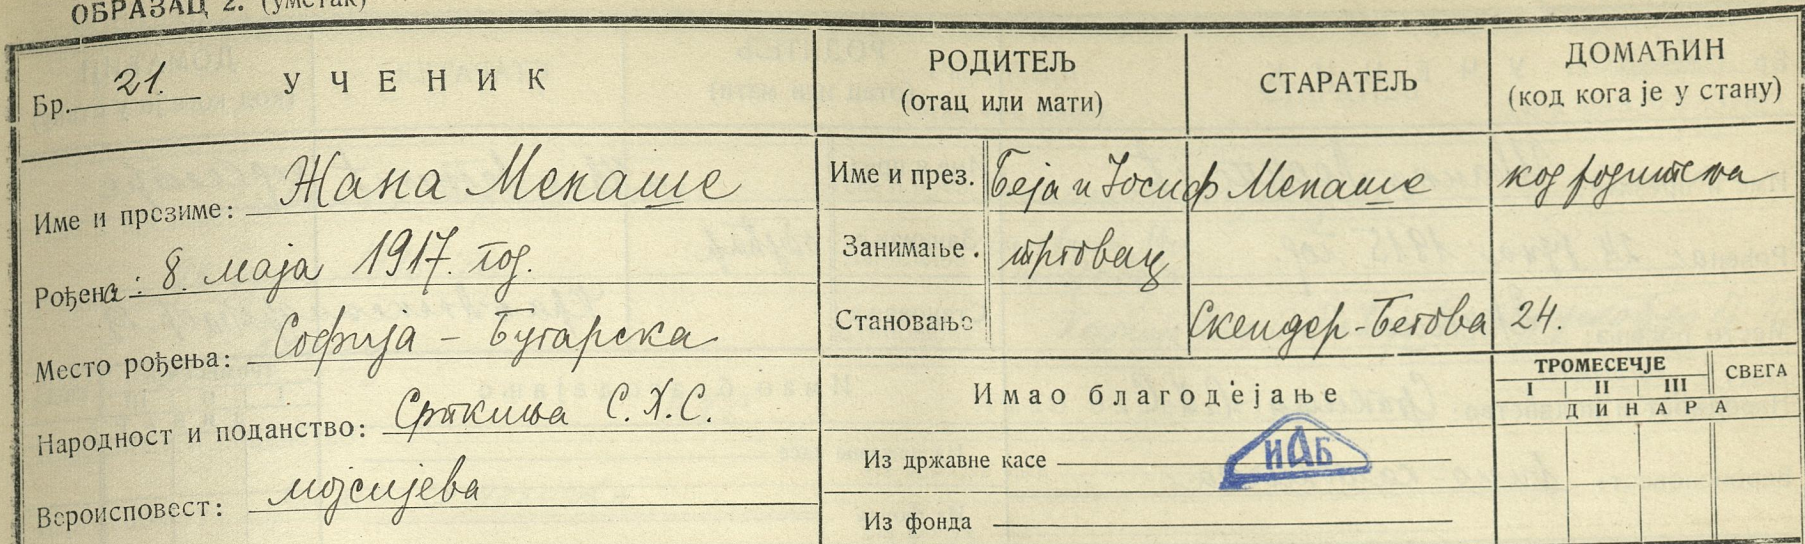 ОБРАЗАЦ 2. (уметак)
Бр. 21. УЧЕНИК
РОДИТЕЉ
(отац или мати)
СТАРАТЕЉ
ДОМАЋИН
(код кога је у стану)
Име и презиме: Жана Менаше
Рођена: 8. маја 1917. год.
Место рођења: Софија - Бугарска
Народност и поданство: Српкиња С.Х.С.
Вероисповест: мојсијева
Име и през. Беја и Јосиф Менаше код родитеља
Занимање. трговац
Становање Скендер-Бегова 24.
Имао благодејање
ТРОМЕСЕЧЈЕ СВЕГА
I II III
ДИНАРА
Из државне касе
ИАБ
Из фонда